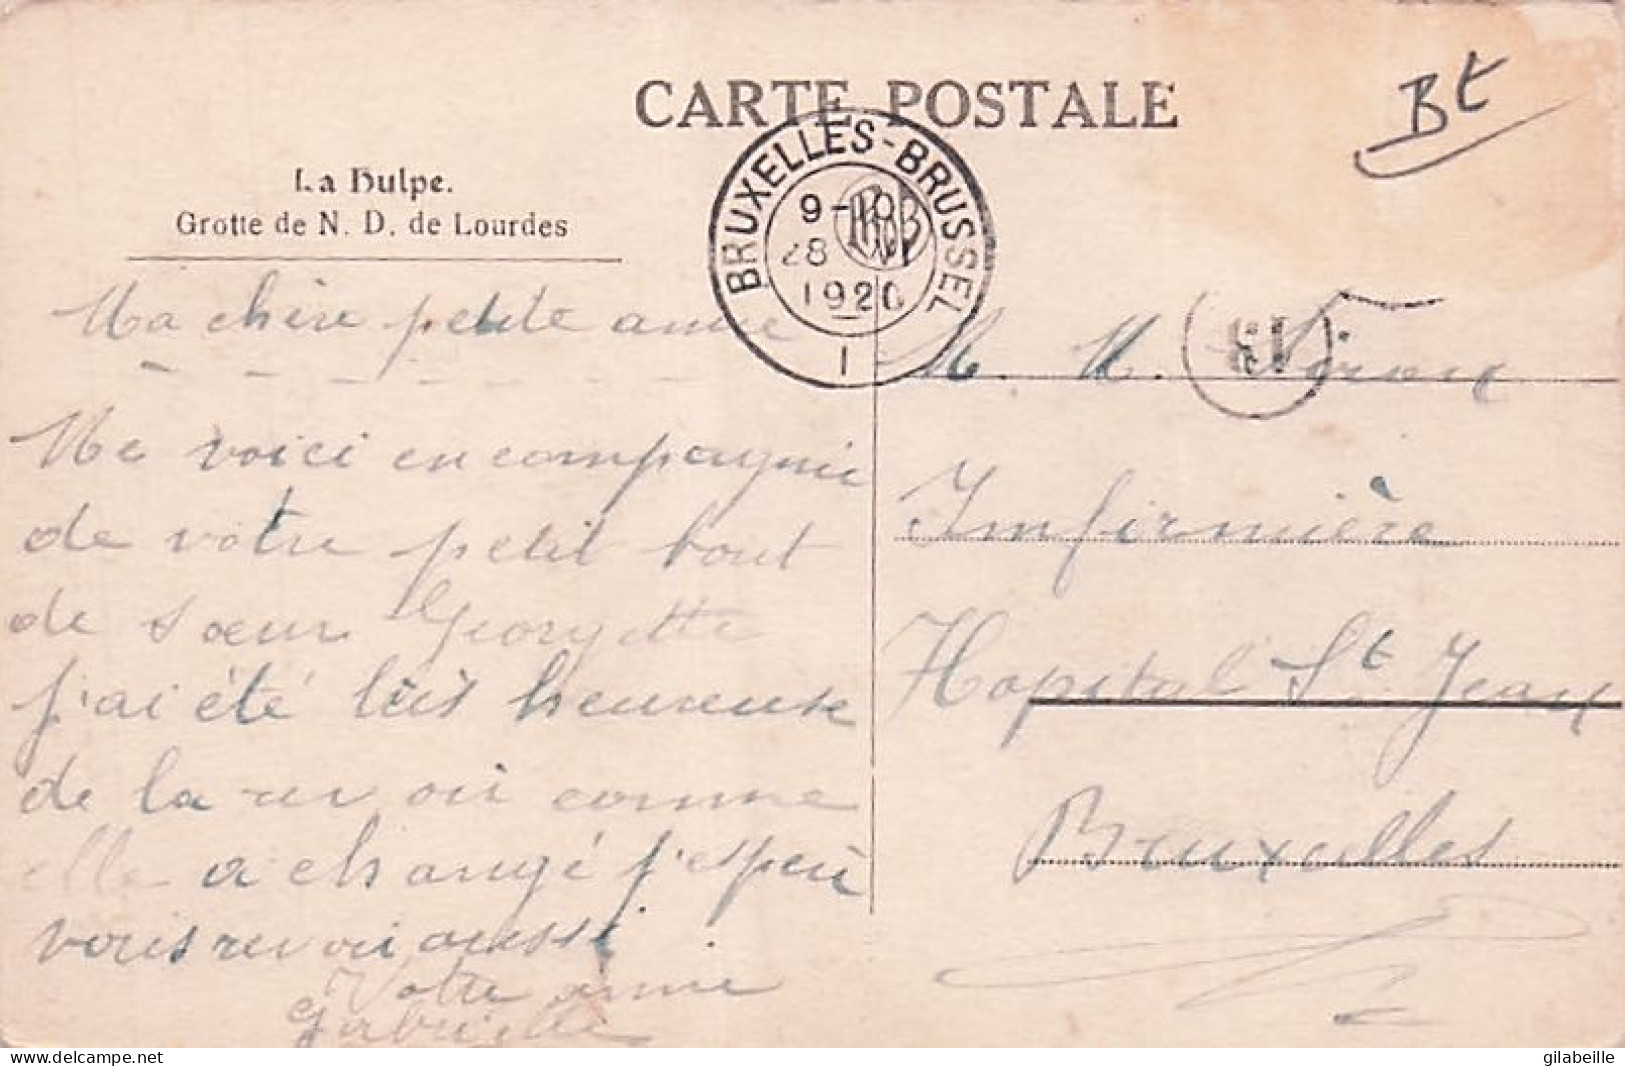 CARTE POSTALE
Bt
La Hulpe.
Grotte de N. D. de Lourdes
BRUXELLES-BRUSSEL
9-10
28 VI
1920
1
Ma chère petite amie
Me voici en compagnie
de votre petit bout
de sœur Georgette
j'ai été très heureuse
de la revoir comme
elle a changé j'espère
vous revoir aussi
Votre amie
Gabrielle
M. M.
Infirmière
Hopital St Jean
Bruxelles
gilabeille